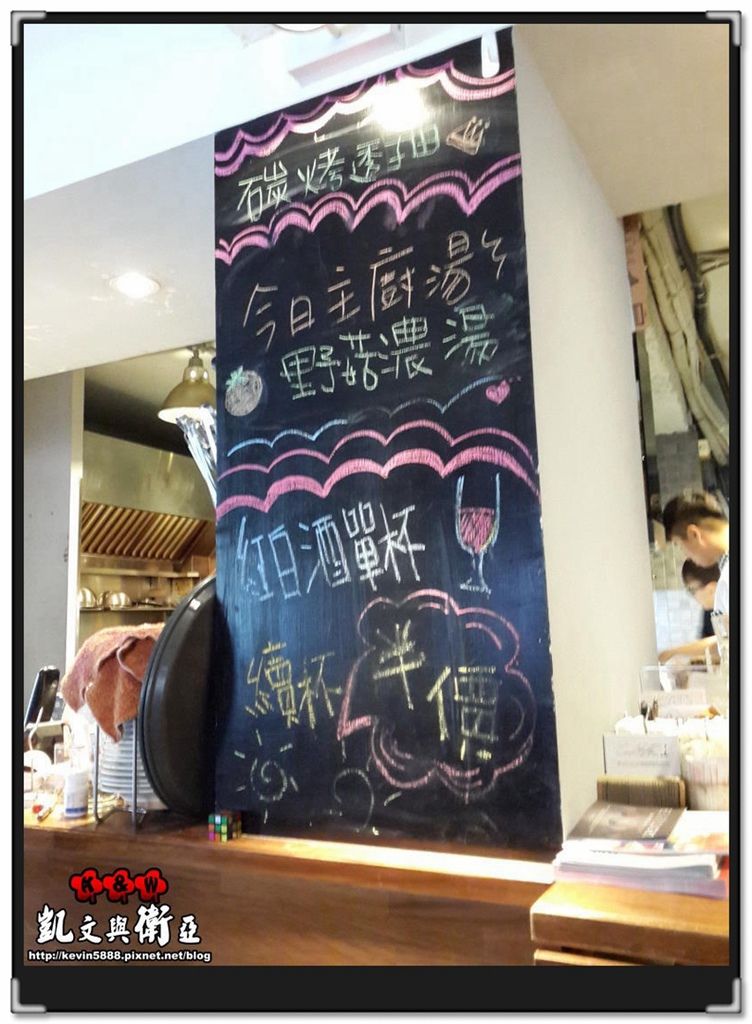 碳烤透抽
今日主廚湯ㄣ
野菇濃湯
紅白酒單杯
續杯半價
K&W
凱文與衛亞
http://kevin5888.pixnet.net/blog